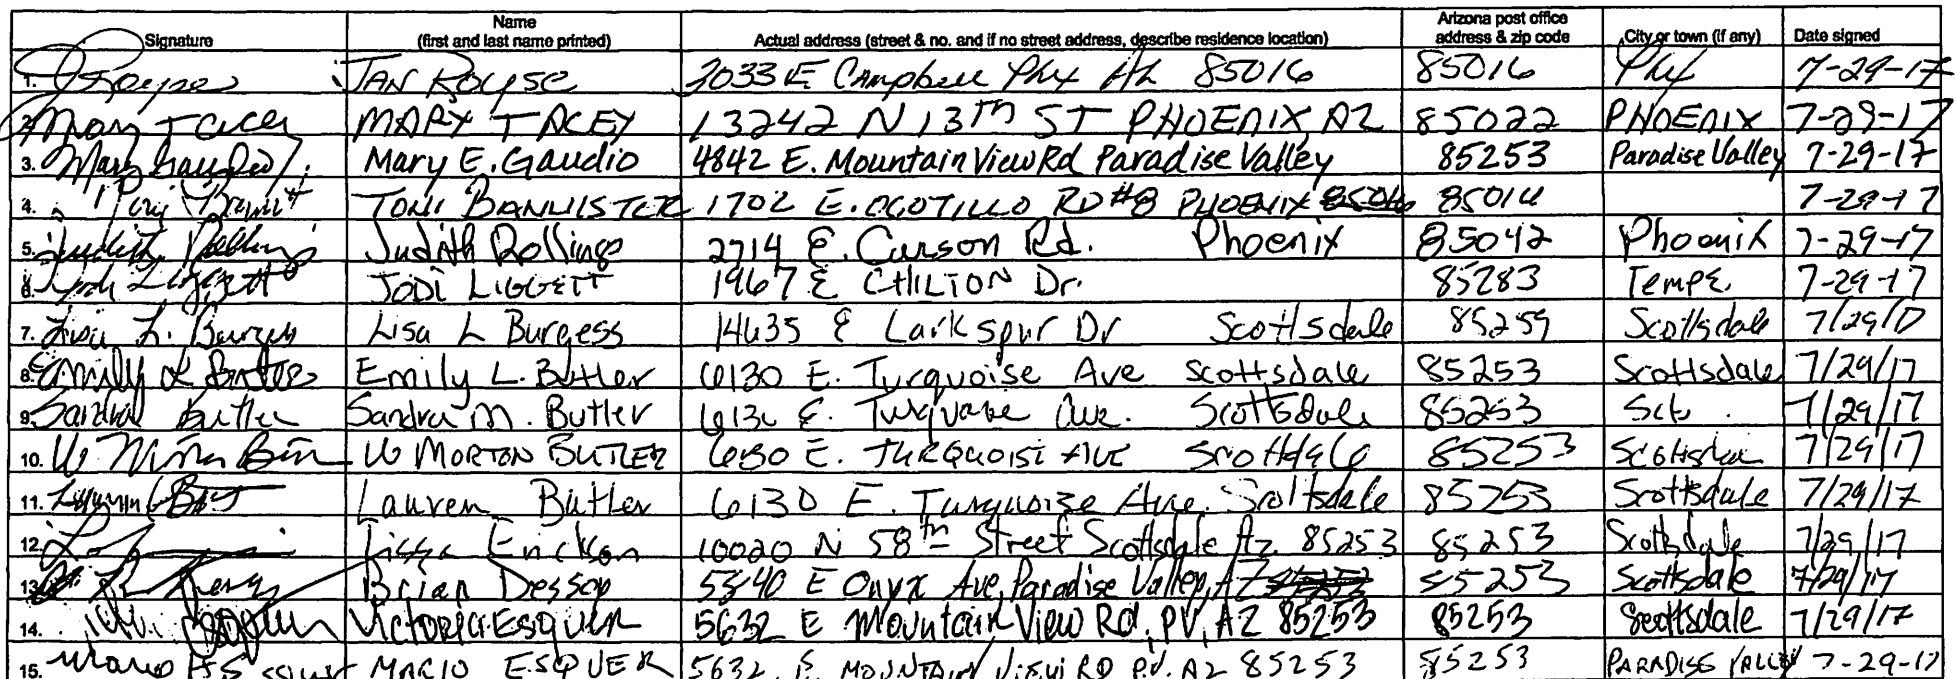 Signature Name (first and last name printed) Actual address (street & no. and if no street address, describe residence location) Arizona post office address & zip code City or town (if any) Date signed
1. JRoyse JAN ROYSE 2033 E Campbell Phx AZ 85016 85016 Phx 7-29-17
2. Mary Tacey MARY TACEY 13242 N 13TH ST PHOENIX, AZ 85022 PHOENIX 7-29-17
3. Mary Gaudio Mary E. Gaudio 4842 E. Mountain View Rd Paradise Valley 85253 Paradise Valley 7-29-17
4. TONI BANNISTER 1702 E. OCOTILLO RD #8 PHOENIX 85016 85016 7-29-17
5. Judith Rollings Judith Rollings 2714 E. Carson Rd. Phoenix 85042 Phoenix 7-29-17
6. Jodi Liggett JODI LIGGETT 1967 E CHILTON Dr. 85283 Tempe 7-29-17
7. Lisa L. Burgess Lisa L Burgess 14635 E Larkspur Dr Scottsdale 85259 Scottsdale 7/29/17
8. Emily L Butler Emily L. Butler 6130 E. Turquoise Ave Scottsdale 85253 Scottsdale 7/29/17
9. Sandra Butler Sandra M. Butler 6130 E. Turquoise Ave. Scottsdale 85253 7/29/17
10. W MORTON BUTLER 6130 E. TURQUOISE AVE Scottsdale 85253 Scottsdale 7/29/17
11. Lauren Butler 6130 E. Turquoise Ave. Scottsdale 85253 Scottsdale 7/29/17
12. Erickson 10020 N 58th Street Scottsdale Az. 85253 85253 Scottsdale 7/29/17
13. Brian Dessap 5340 E Onyx Ave, Paradise Valley, AZ 85253 Scottsdale 7/29/17
14. Victoria Esquer 5632 E Mountain View Rd, PV, AZ 85253 85253 Scottsdale 7/29/17
15. Mario Esquer MARIO ESQUER 5632 E. MOUNTAIN VIEW RD P.V. AZ 85253 85253 PARADISE VALLEY 7-29-17